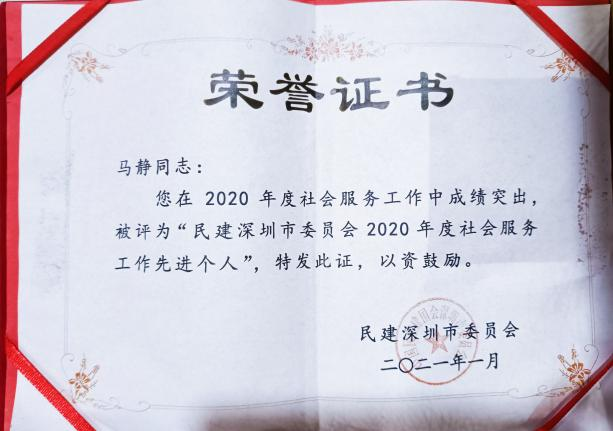 荣誉证书
马静同志：
您在 2020 年度社会服务工作中成绩突出，
被评为“民建深圳市委员会 2020 年度社会服务
工作先进个人”，特发此证，以资鼓励。
民建深圳市委员会
二〇二一年一月